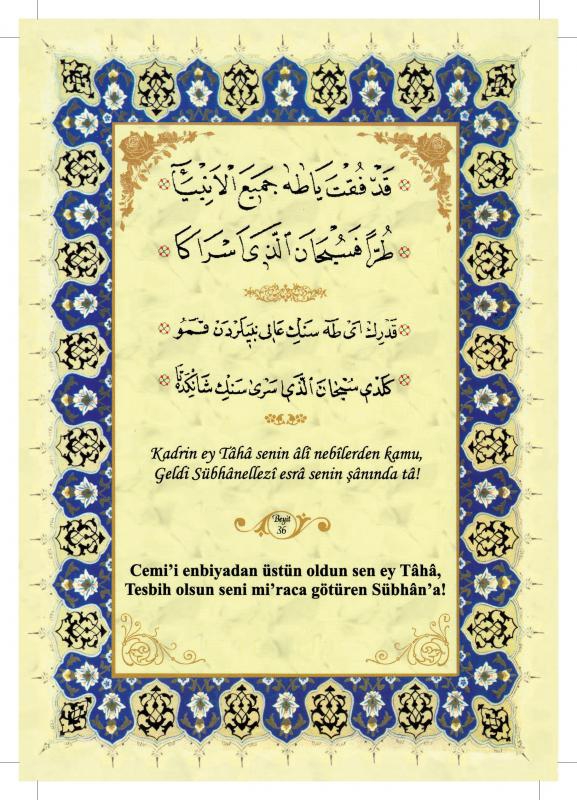 قَدْ فُقْتَ يَا طٰهٰ جَمِيعَ الْاَنْبِيَاءِ
طُرًّا فَسُبْحَانَ الَّذِى اَسْرَاكَا
قدرك اى طه سنك عالى نبيلردن قمو
كلدى سبحان الذى اسرى سنك شانكده تا
Kadrin ey Tâhâ senin âlî nebîlerden kamu,
Geldi Sübhânellezî esrâ senin şânında tâ!
Beyit
36
Cemi’i enbiyadan üstün oldun sen ey Tâhâ,
Tesbih olsun seni mi’raca götüren Sübhân’a!